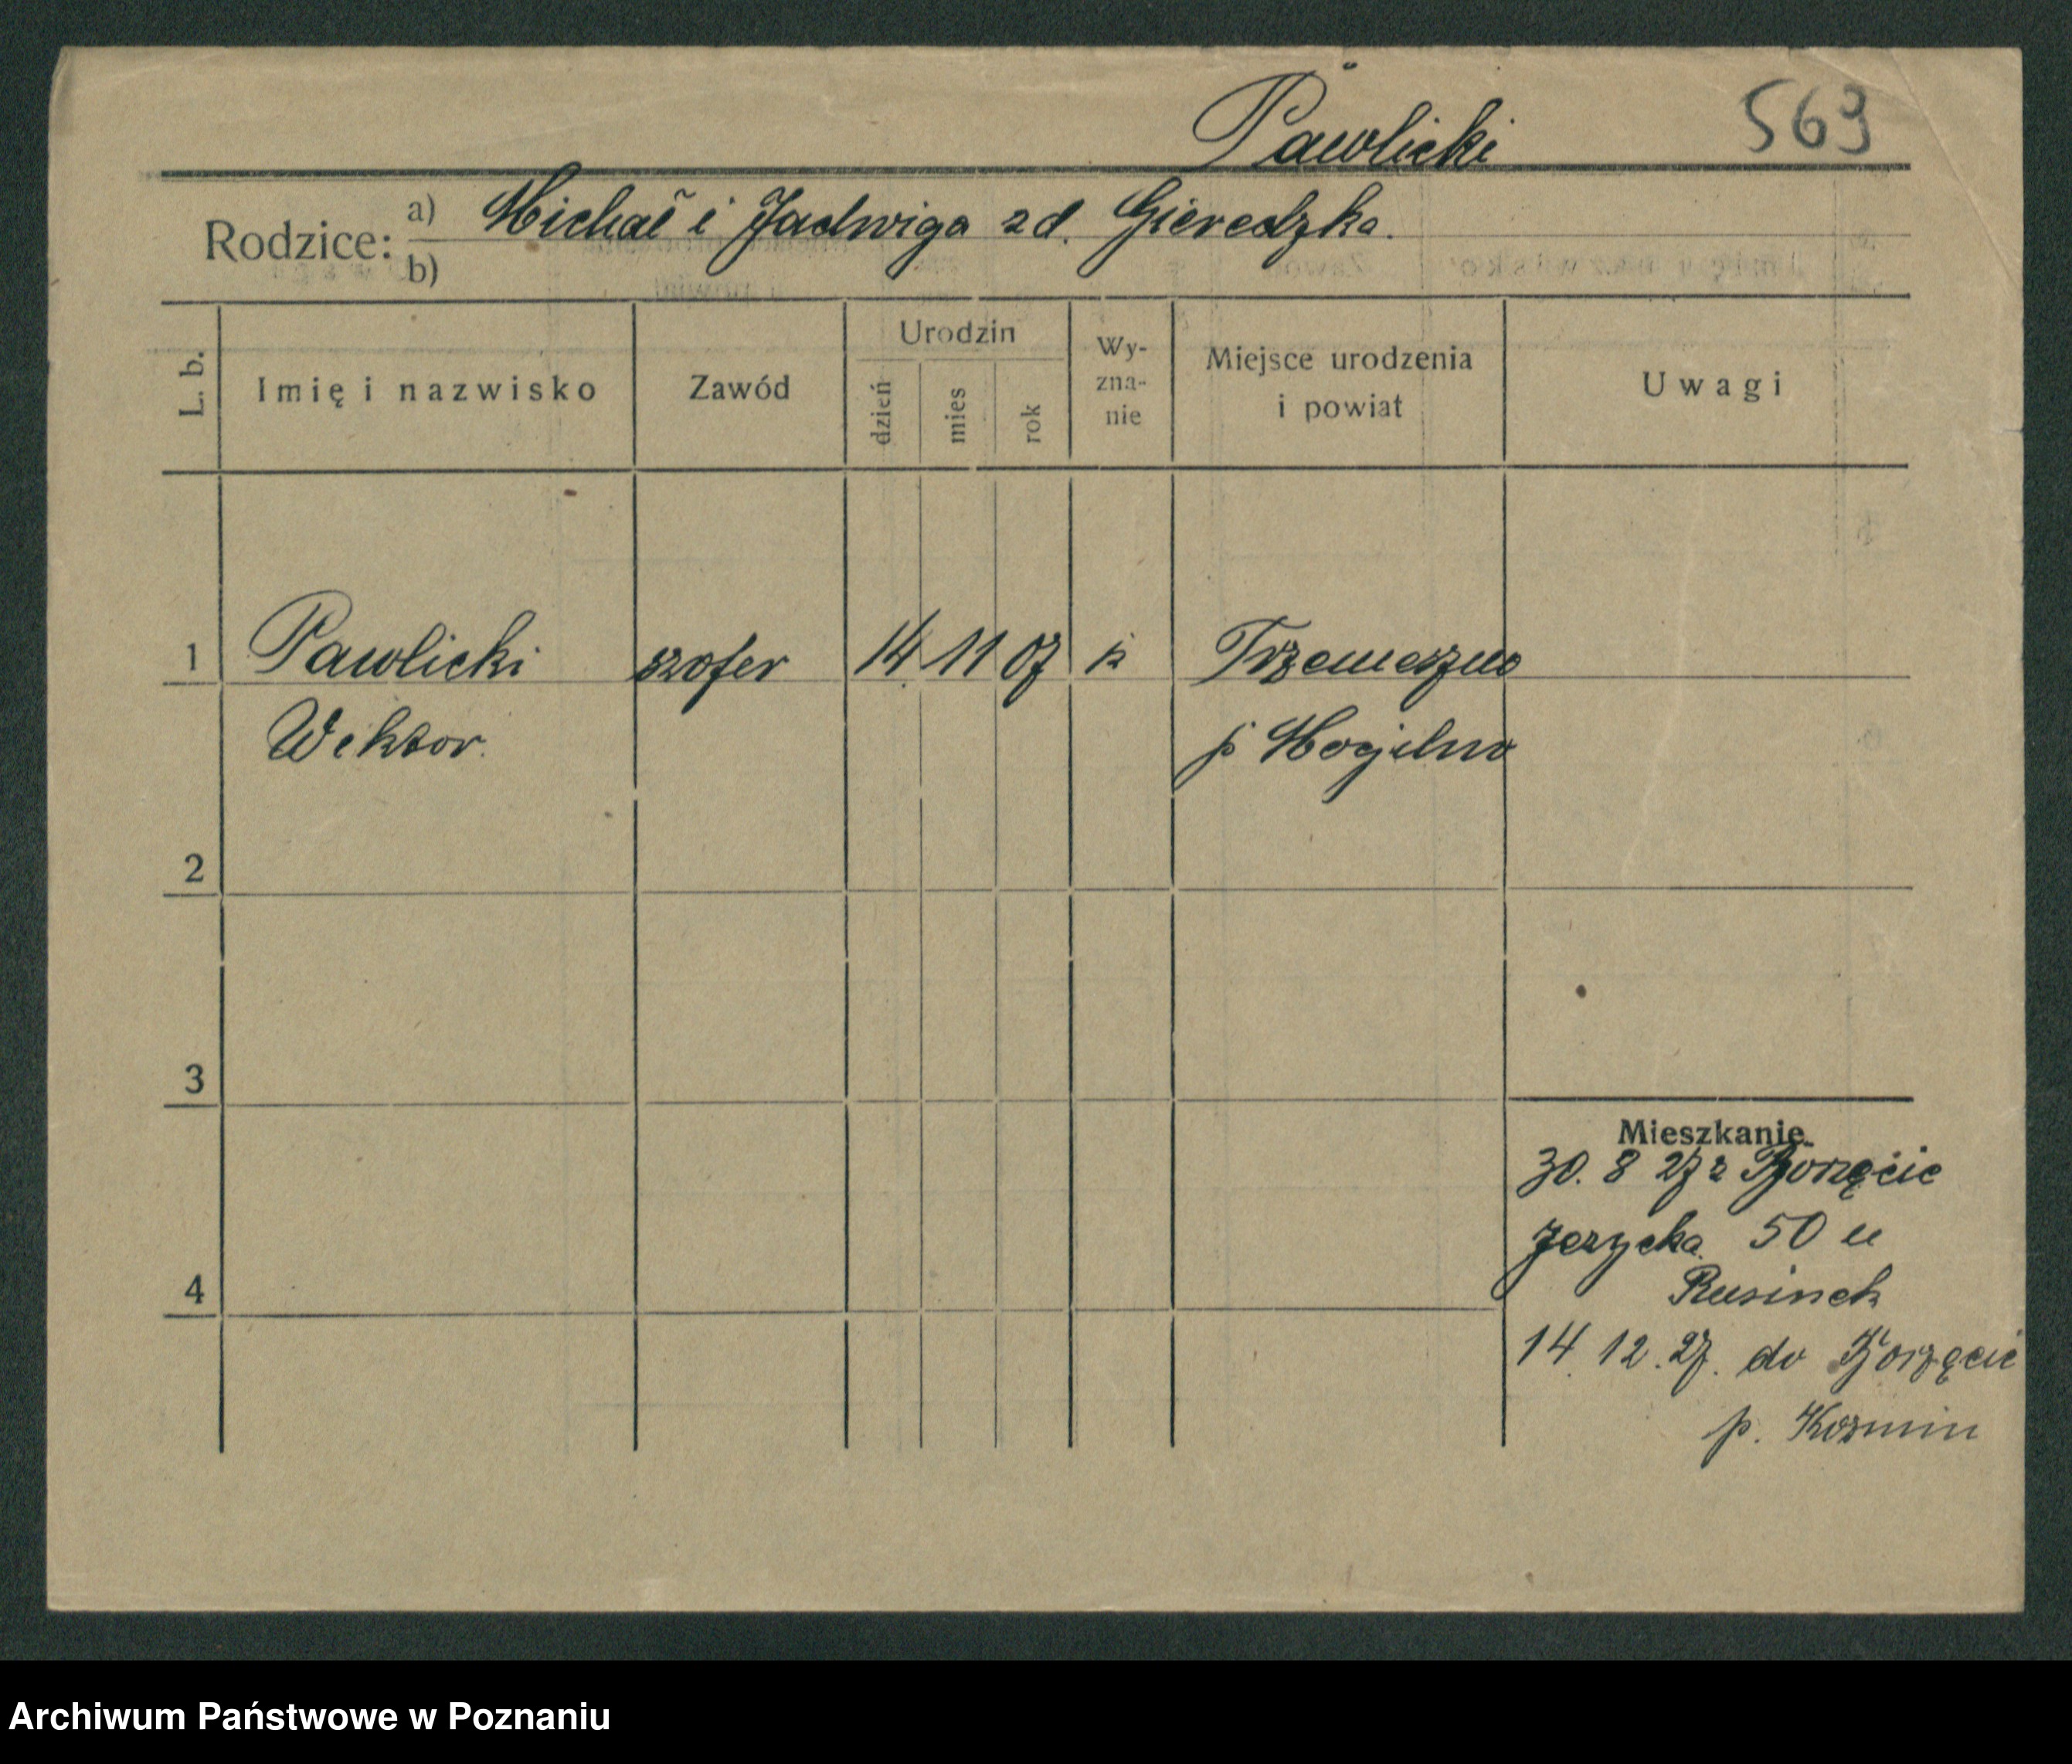 Pawlicki
569
Rodzice: a) Michał i Jadwiga zd. Gieredzka.
b)
L. b. Imię i nazwisko Zawód Urodzin dzień mies rok Wy-zna-nie Miejsce urodzenia i powiat Uwagi
1 Pawlicki szofer 14 11 07 k Trzemeszno
Wektor. p Mogilno
2
3
Mieszkanie
30. 8 27 z Borzęcic
Jezycka 50 u
4 Rusinek
14. 12. 27. do Borzęcic
p. Kozmin
Archiwum Państwowe w Poznaniu